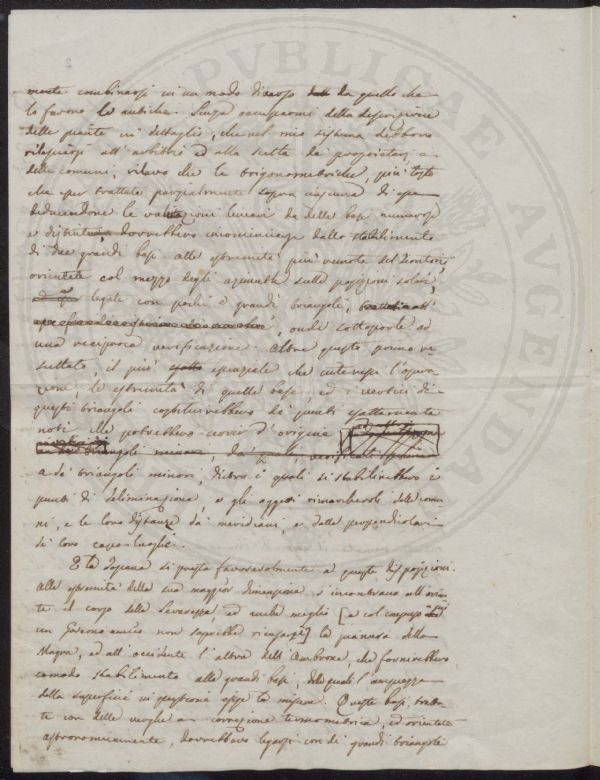 mente combinarsi in un modo diverso da quello che
lo furono le antiche. Senza occuparmi della descrizione
delle piante in dettaglio, che nel mio sistema debbono
rilasciarsi all'arbitrio ed alla scelta dei proprietarj, e
delle comuni, rilevo che le trigonometriche, più tosto
che esser trattate parzialmente sopra ciascuna di esse
deducendone le valutazioni lineari da delle basi numerose
e distinte, dovrebbero incominciarsi dallo stabilimento
di due grandi basi alle estremità più remote del Territorio
orientate col mezzo degli azimuth sulle posizioni solari,
legate con pochi e grandi triangoli,
onde sottoporle ad
una reciproca verificazione. Oltre questo primo re
sultato, il più essenziale che interessi l'opera
zione, le estremità di quelle basi ed i vertici di
questi triangoli costituirebbero dei punti esattamente
noti che potrebbero servir d'origine
a de' triangoli minori, dietro i quali si stabilirebbero i
punti di deliminazione, e gli oggetti rimarchevoli delle comu
ni, e le loro distanze da' meridiani, e dalle perpendicolari
di loro capo-luoghi.
E la Toscana si presta favorevolmente a queste disposizioni.
Alle estremità della sua maggior dimensione s'incontrano all'orien
te il corso della ed anche meglio [e col compenso
un Governo amico non saprebbe ricusarsi] la pianura della
Magra, ed all'occidente l'altra dell'Ombrone, che fornirebbero
comodo stabilimento alle grandi basi, delle quali l'ampiezza
della superficie in piastroni esige la misura. Queste basi tratta
te con delle verghe a correzione termometrica, ed orientate
astronomicamente, dovrebbero legarsi con de' grandi triangoli